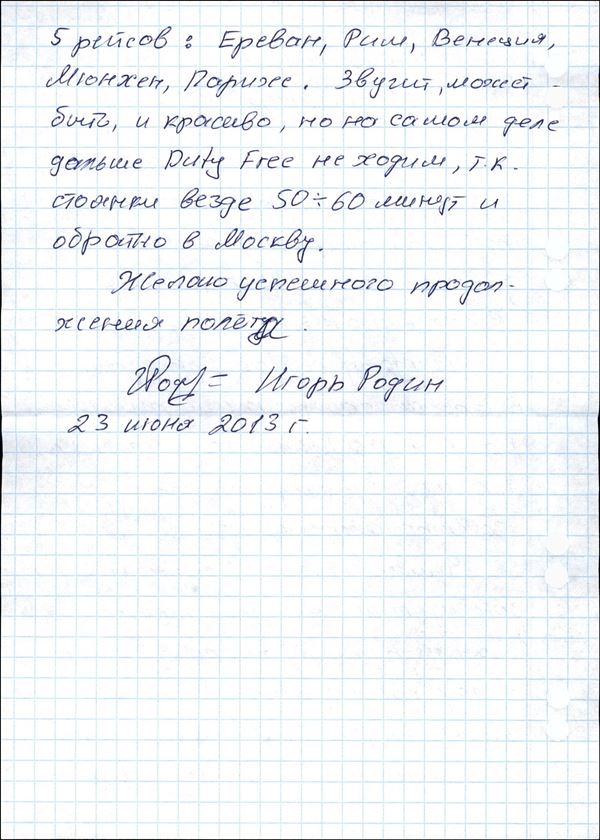 5 рейсов: Ереван, Рим, Венеция,
Мюнхен, Париж. Звучит, может
быть, и красиво, но на самом деле
дальше Duty Free не ходим, т.к.
стоянки везде 50÷60 минут и
обратно в Москву.
Желаю успешного продол-
жения полёта.
Игорь Родин
23 июня 2013 г.